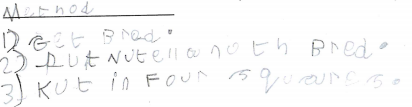 Method
1) Get Bred.
2) Put Nutella noth Bred.
3) Kut in Four squares.